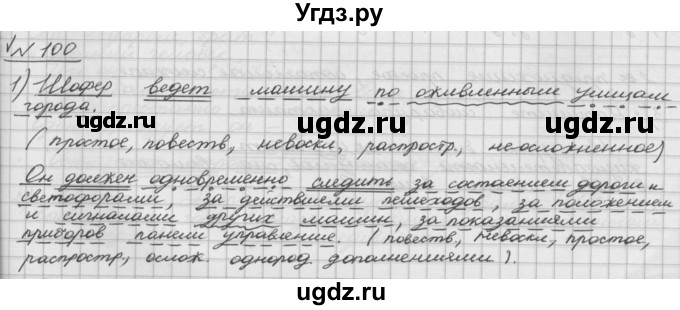 Угдз.ру
√ № 100
1) Шофер ведет машину по оживленным улицам
города.
ugdz.ru ugdz.ru
(простое, повеств, невоскл, распростр, неосложненное)
Он должен одновременно следить за состоянием дороги и
светофорами, за действиями пешеходов, за положением
ugdz.ru ugdz.ru
и сигналами других машин, за показаниями
приборов панели управление. (повеств, невоскл, простое,
распростр, ослож. однород дополнениями).
ugdz.ru